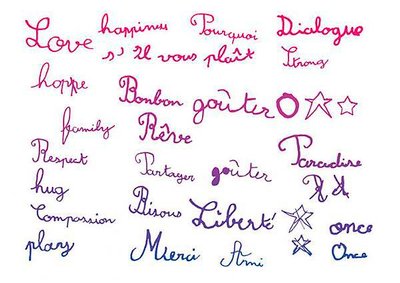 Love happiness Pourquoi Dialogue
s'il vous plaît Strong
hoppe Bonbon goûter
family Rêve
Respect Partager goûter Paradise
hug Bisous Liberté R R
Compassion once
play Merci Ami Once